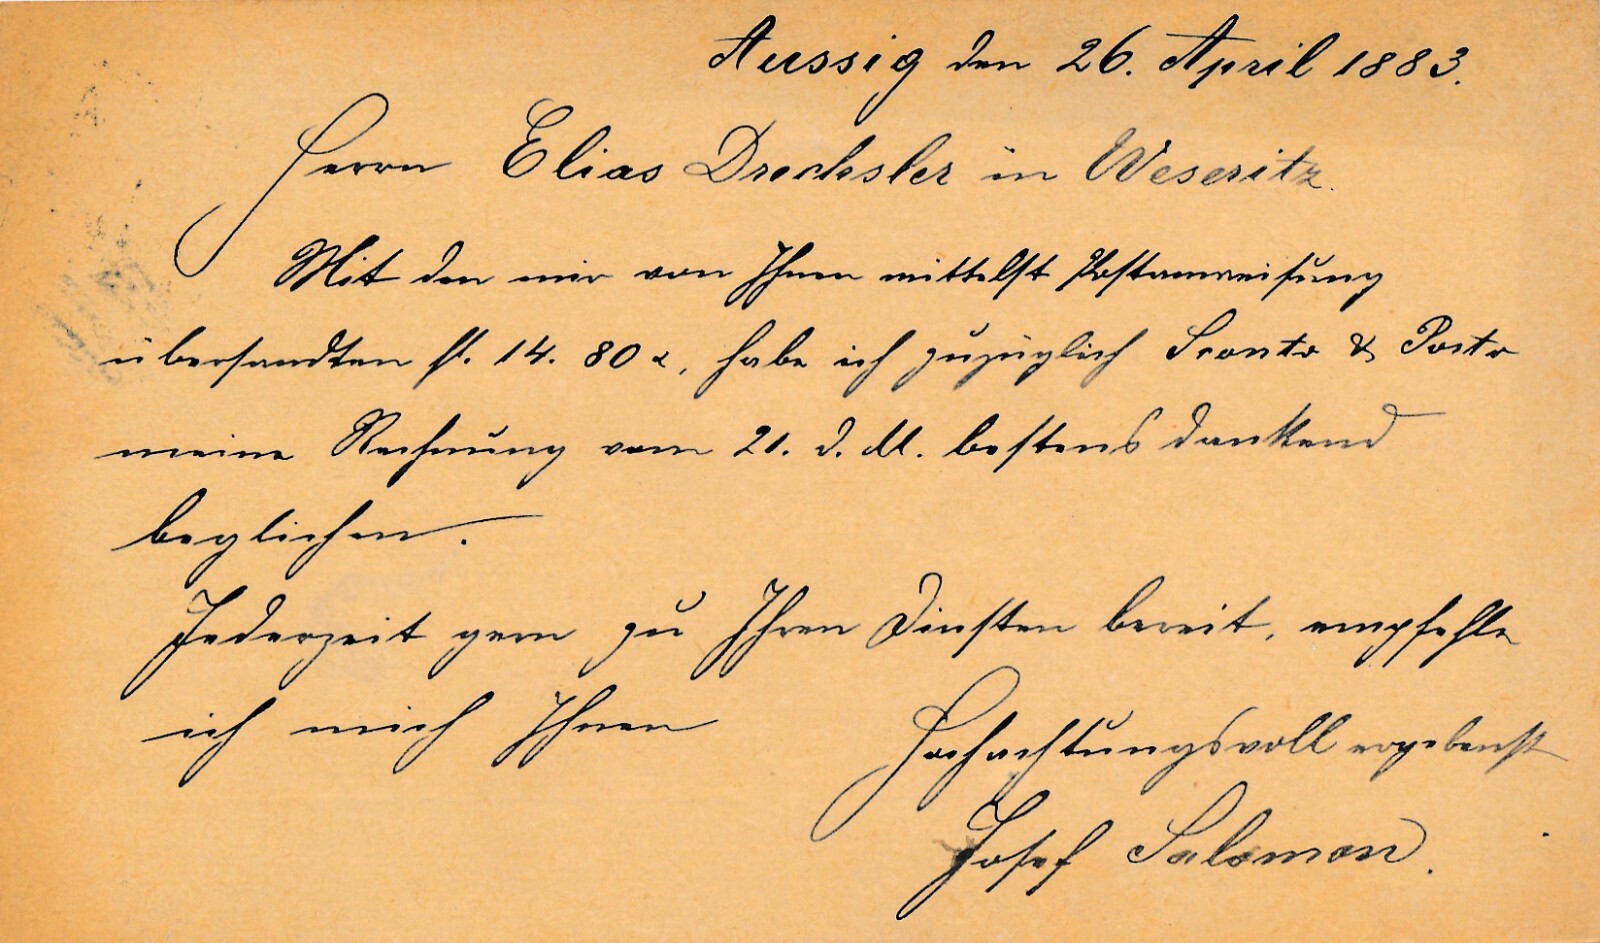 Aussig den 26. April 1883.
Herrn Elias Drechsler in Weseritz.
Mit den mir von Ihnen mittelst Postanweisung
übersandten fl. 14. 80 x, habe ich zuzüglich Sconto & Porto
meine Rechnung vom 21. d. M. bestens dankend
beglichen.
Jederzeit gern zu Ihren Dinsten bereit, empfehle
ich mich Ihnen
Hochachtungsvoll ergebenst
Josef Salomon.